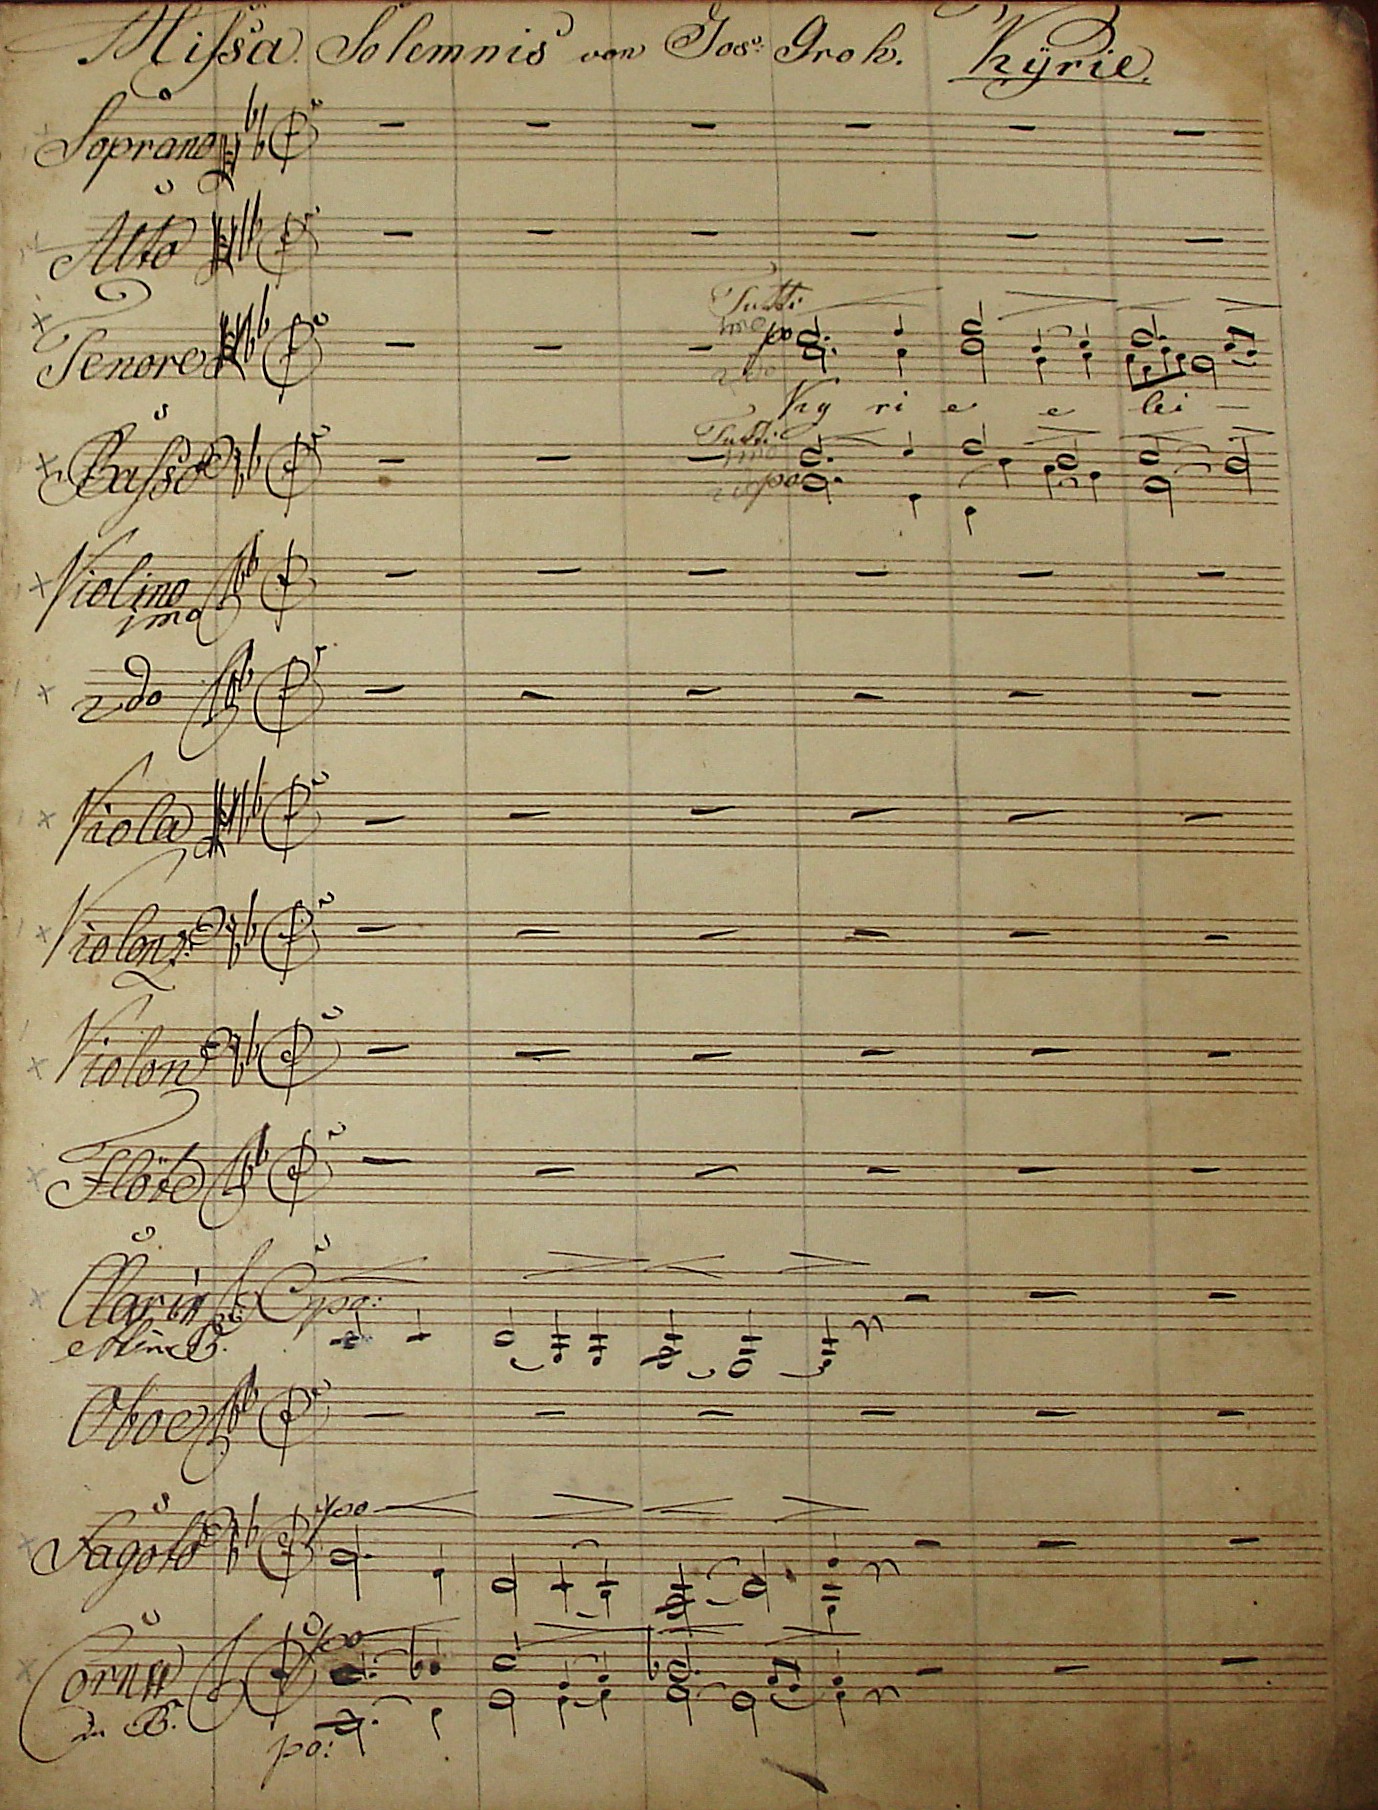 Missa Solemnis von Jos: Groh. Kÿrie.
Soprano
Alto
Tutti
imo po
Tenore
2do
Ky ri e e lei —
Tutti
imo
Basso
2do po
Violino
imo
2do
Viola
Violonz:
Violon
Flöte
Clarin po:
in B.
Oboe
po
Fagoto
po
Corni
in B.
po: